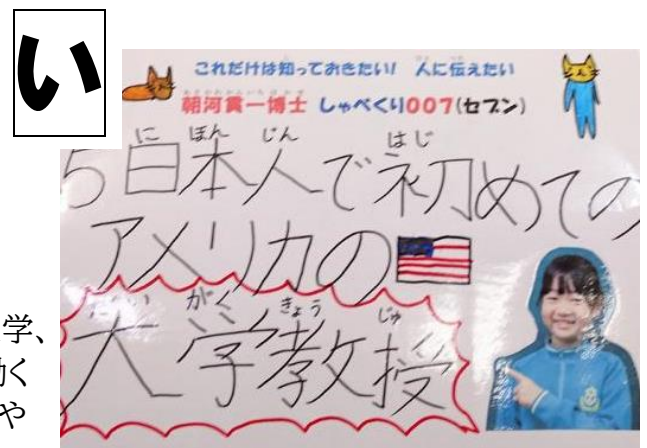 い
これだけは知っておきたい! 人に伝えたい
朝河貫一博士 しゃべくり007(セブン)
5日本人で初めての
アメリカの
大学教授
学、
働く
や